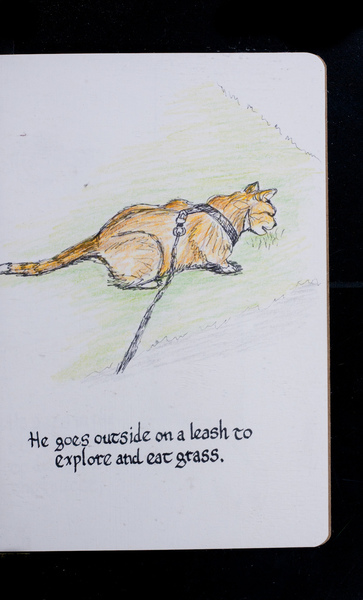 He goes outside on a leash to
explore and eat grass.